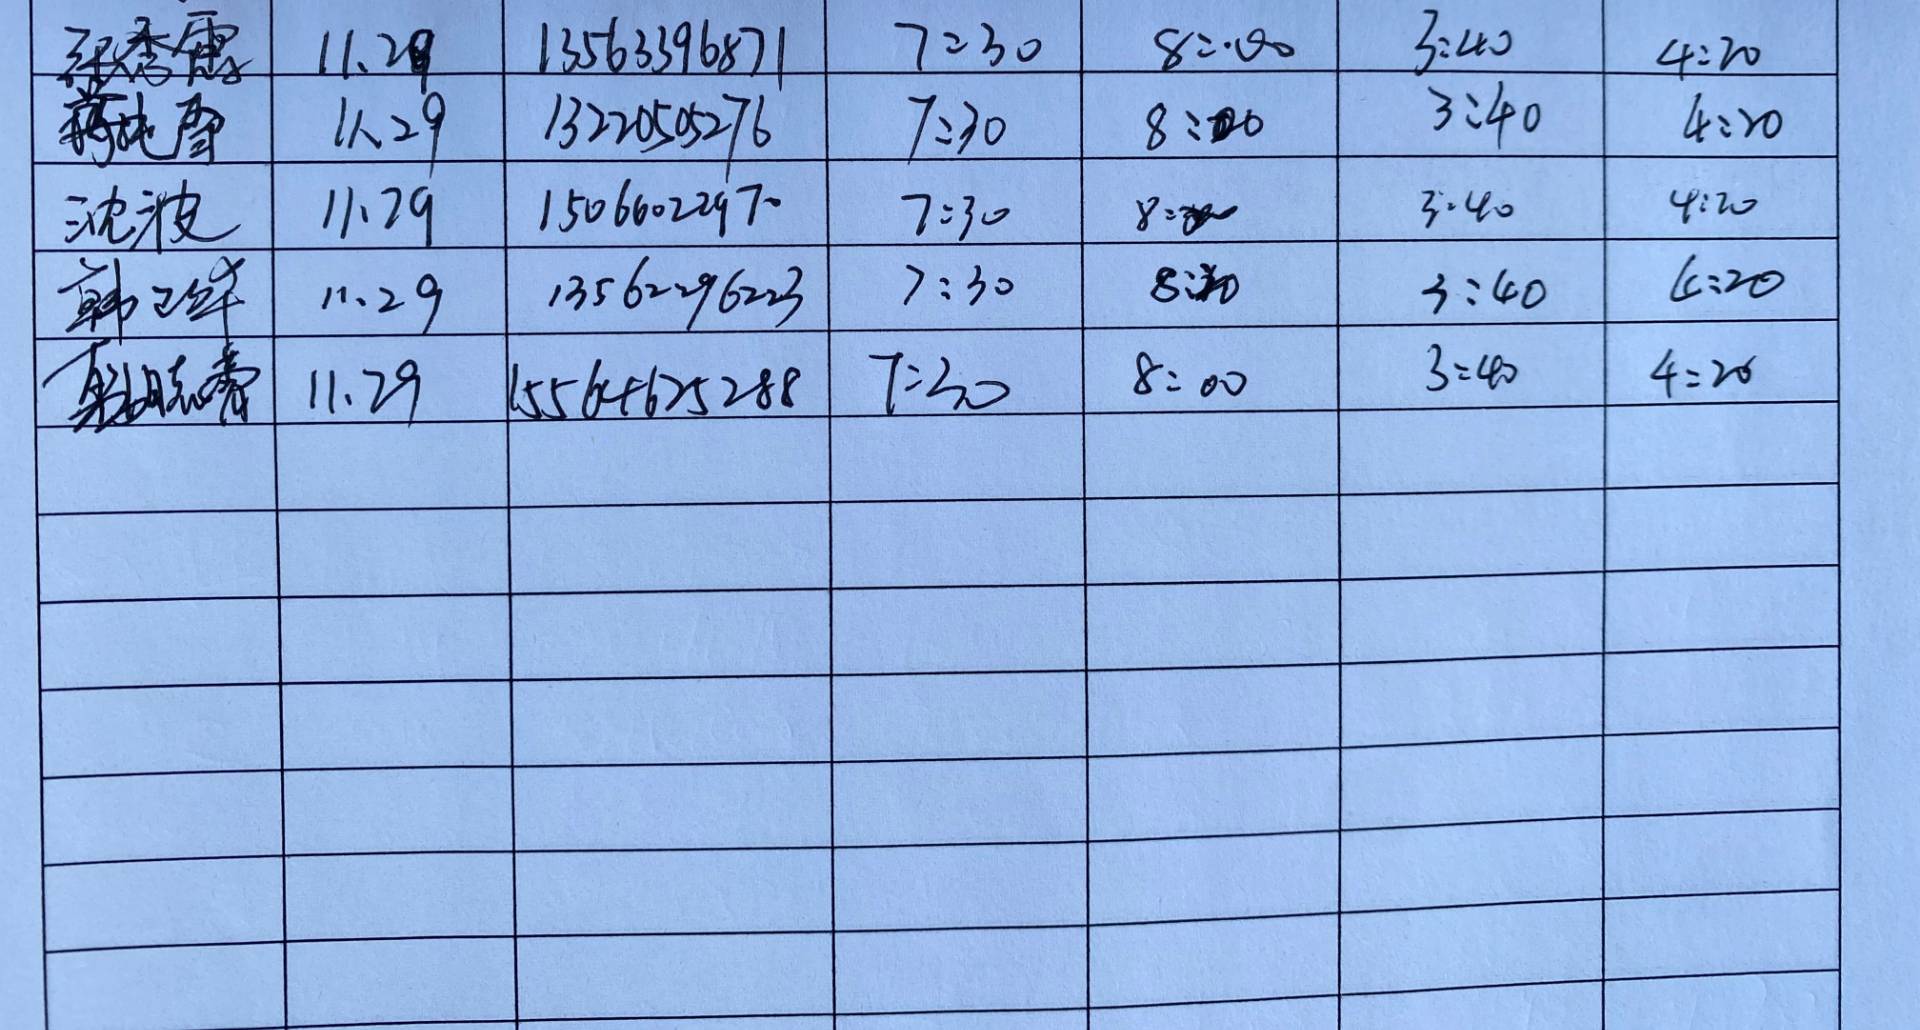 张秀霞 11.29 13563396871 7:30 8:00 3:40 4:20
雪 11.29 13220505276 7:30 8:00 3:40 4:20
沈波 11.29 15066022970 7:30 8: 3:40 4:20
韩卫华 11.29 13562296223 7:30 8: 3:40 4:20
11.29 15564625288 7:30 8:00 3:40 4:20